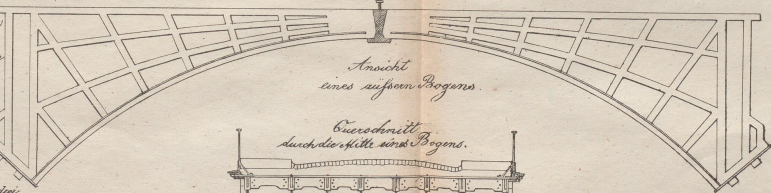 Ansicht
eines äußern Bogens.
Querschnitt
durch die Mitte eines Bogens.